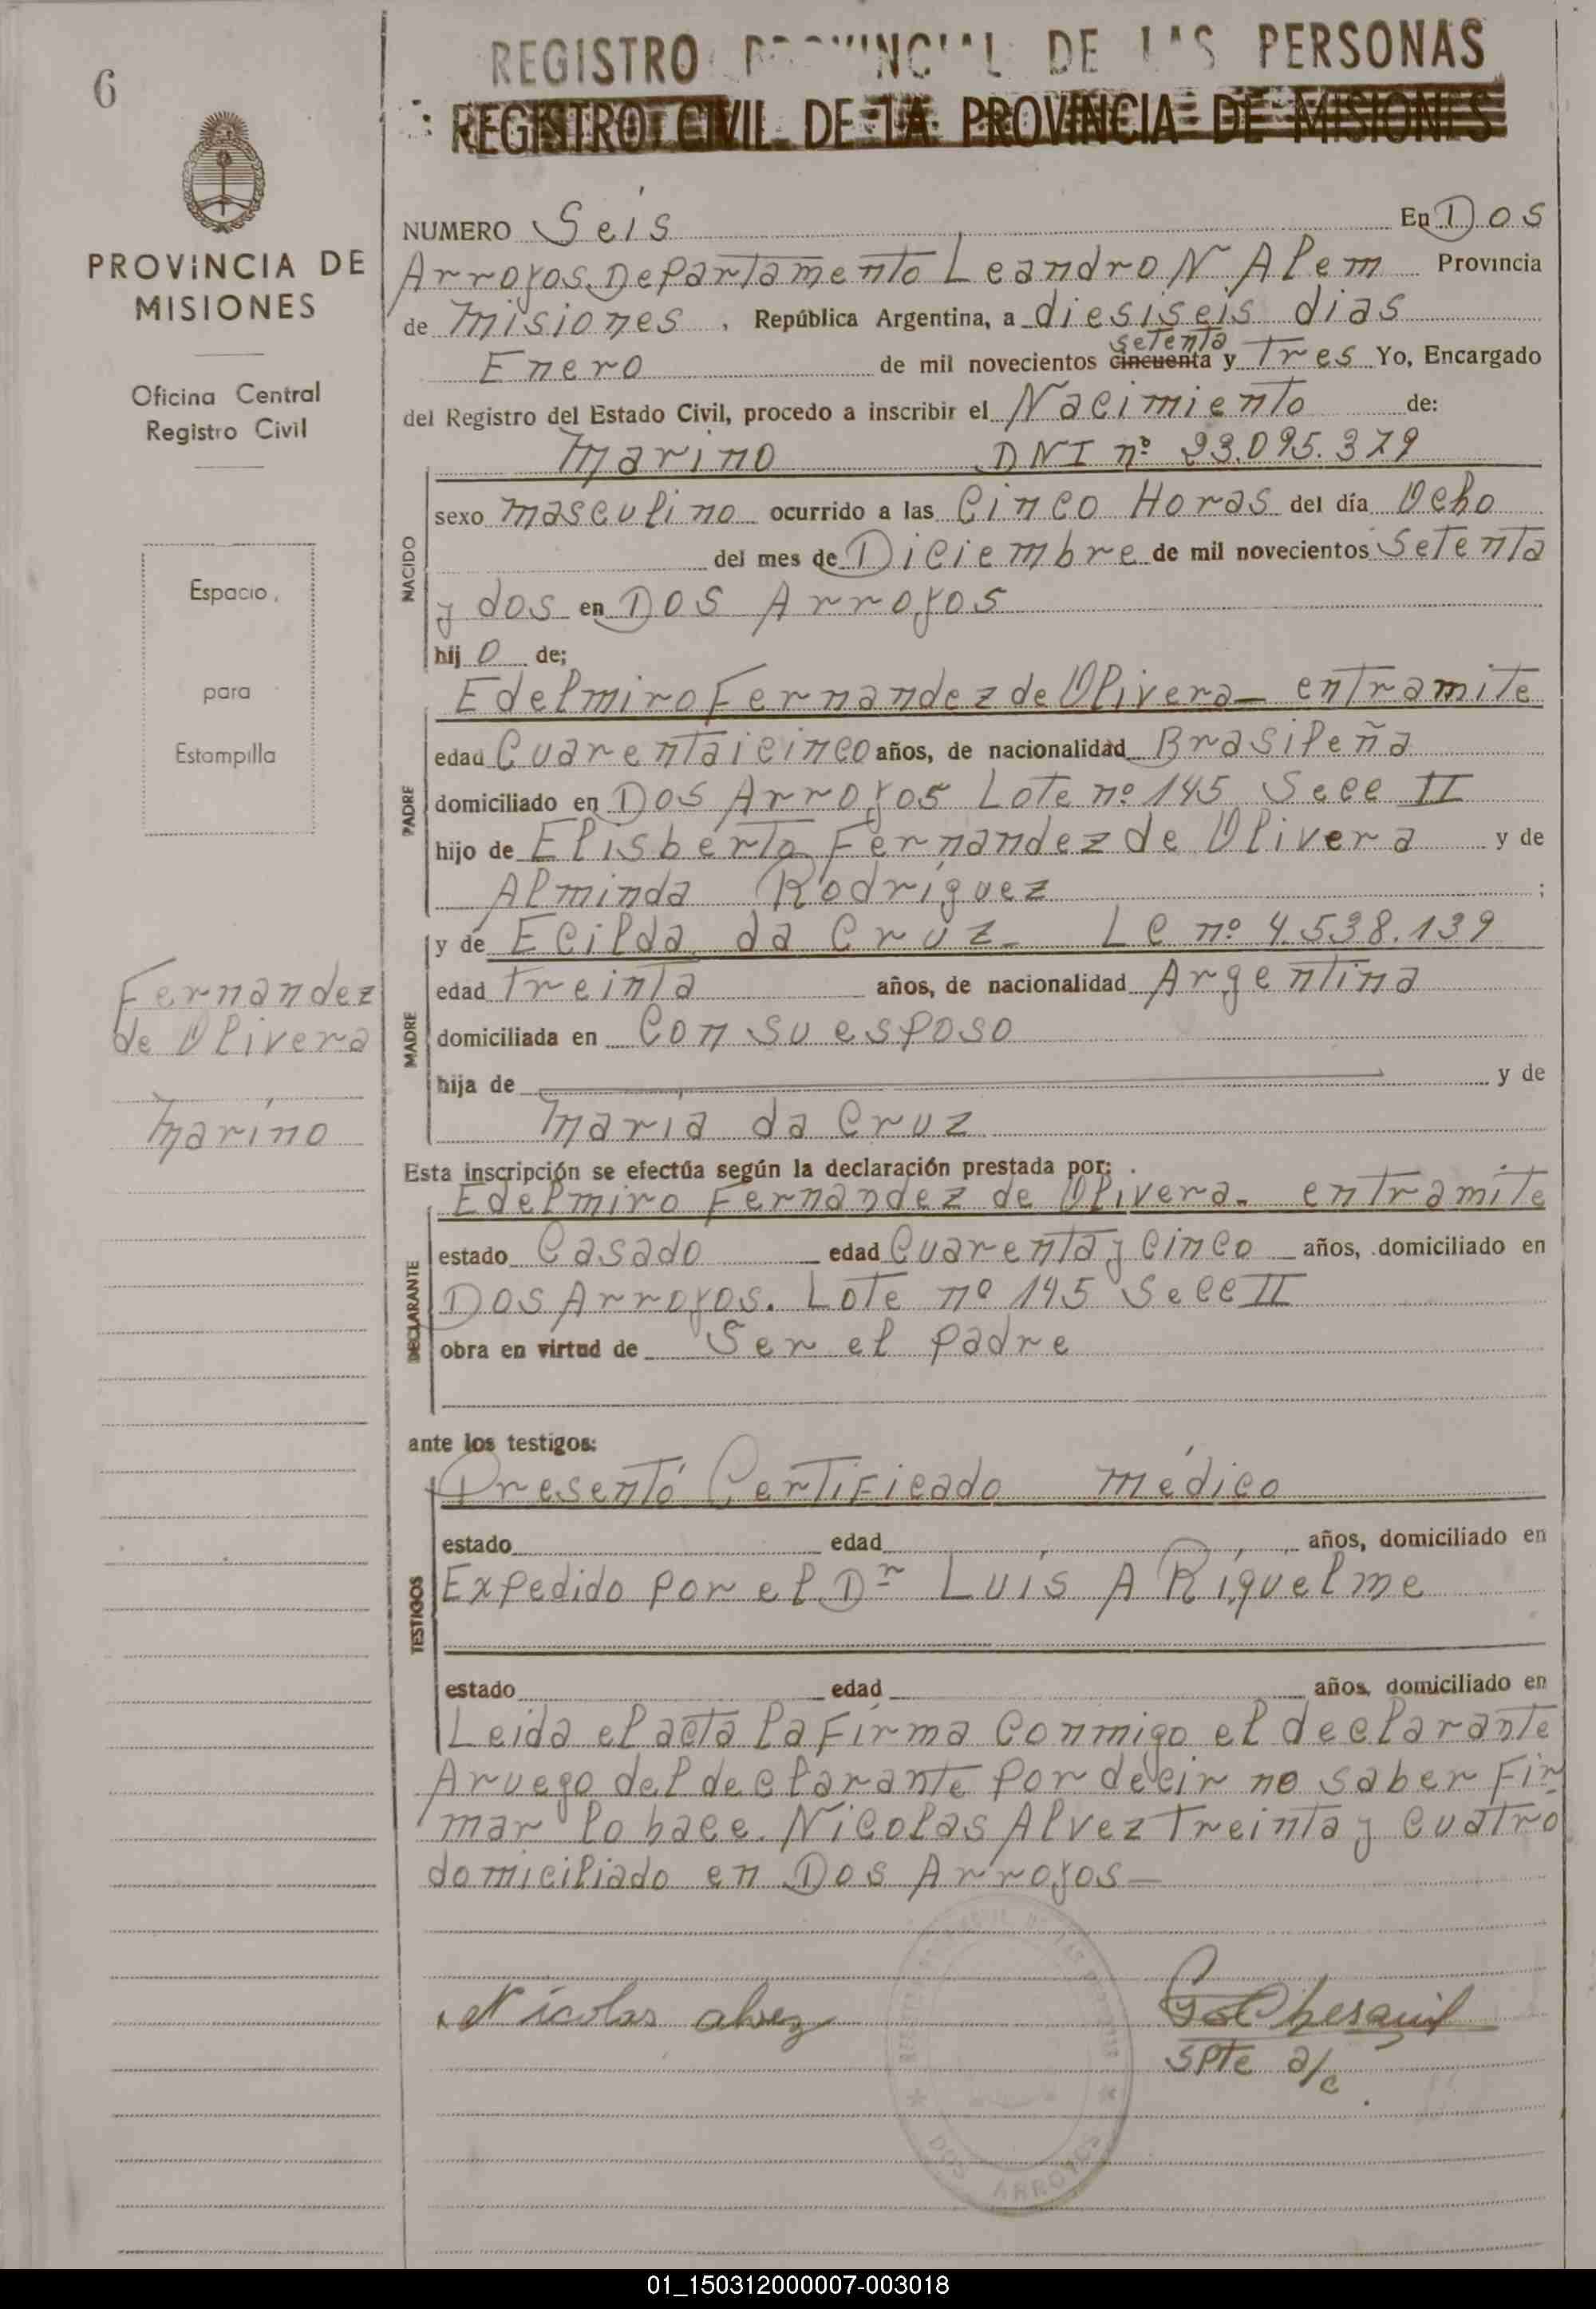 6
PROVINCIA DE
MISIONES
Oficina Central
Registro Civil
Espacio
para
Estampilla
Fernandez
de Olivera
Marino
REGISTRO PROVINCIAL DE LAS PERSONAS
REGISTRO CIVIL DE LA PROVINCIA DE MISIONES
NUMERO Seis En Dos
Arroyos. Departamento Leandro N. Alem Provincia
de Misiones , República Argentina, a diesiseis dias
setenta
Enero de mil novecientos cincuenta y Tres Yo, Encargado
del Registro del Estado Civil, procedo a inscribir el Nacimiento de:
Marino DNI nº 23.095.379
NACIDO
sexo masculino ocurrido a las Cinco Horas del día Ocho
del mes de Diciembre de mil novecientos Setenta
y dos en Dos Arroyos
hij o de;
PADRE
Edelmiro Fernandez de Olivera_ entramite
edad Cuarentaicinco años, de nacionalidad Brasileña
domiciliado en Dos Arroyos Lote nº 145 Secc II
hijo de Elisberto Fernandez de Olivera y de
Alminda Rodríguez ;
MADRE
y de Ecilda da Cruz_ LC nº 4.538.139
edad treinta años, de nacionalidad Argentina
domiciliada en Con su esposo
hija de y de
María da Cruz
Esta inscripción se efectúa según la declaración prestada por:
DECLARANTE
Edelmiro Fernandez de Olivera. entramite
estado Casado edad Cuarenta y Cinco años, domiciliado en
Dos Arroyos. Lote nº 145 Secc II
obra en virtud de Ser el padre
ante los testigos:
TESTIGOS
Presentó Certificado médico
estado edad años, domiciliado en
Expedido por el Dr Luís A Ríquelme
estado edad años, domiciliado en
Leida el acta la Firma Conmigo el declarante
Aruego del declarante por decir no saber Fir
mar lo hace. Nicolas Alvez Treinta y Cuatro
domiciliado en Dos Arroyos_
Nicolas alvez
Spte a/c
DOS ARROYOS
01_150312000007-003018